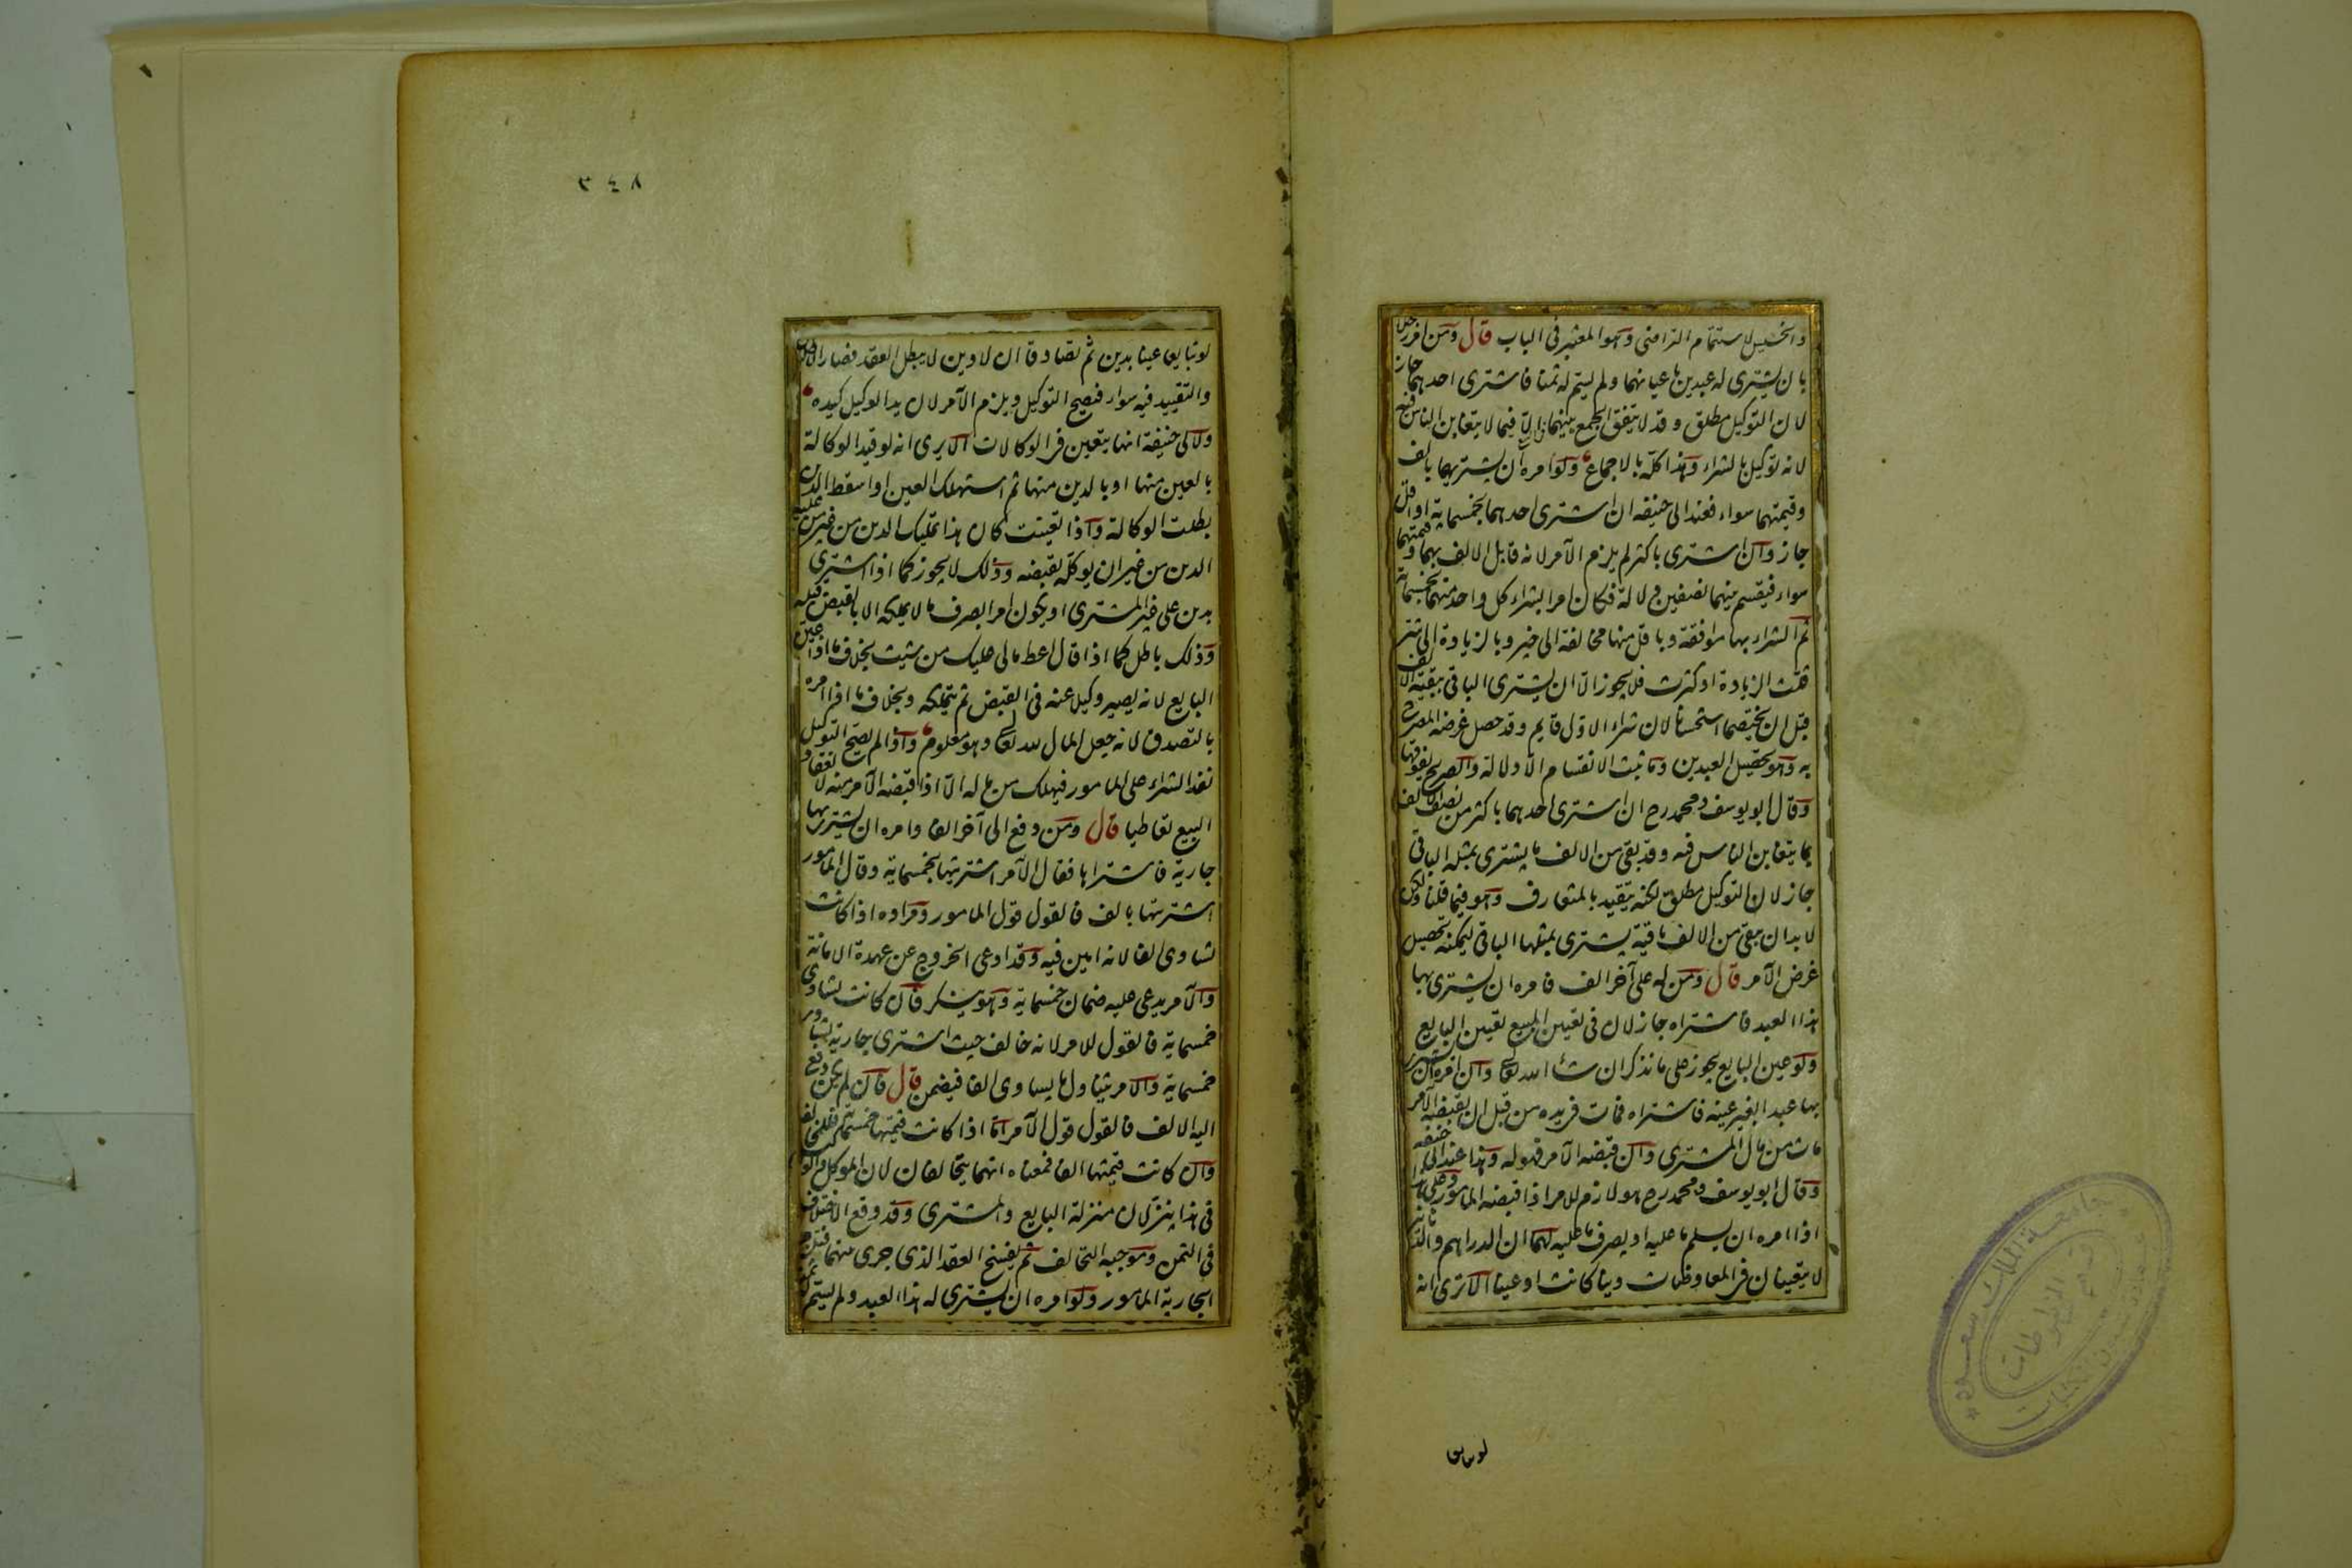 والخسيس لاستتمام التراضي وهو المعتبر في الباب قال ومن امر رجلا
بان يشترى له عبدين باعيانهما ولم يسم له ثمنا فاشترى احدهما جاز
لان التوكيل مطلق وقد لا يتفق الجمع بينهما الا فيما لا يتغابن الناس فيه
لانه توكيل بالشراء وهذا كله بالاجماع ولو امره ان يشتريهما بالف
وقيمتهما سواء فعند ابى حنيفه ان اشترى احدهما بخمسماية او اقل
جاز وان اشترى باكثر لم يلزم الآمر لانه قابل الالف بهما وقيمتهما
سواء فيقسم بينهما نصفين دلالة فكان امرا بشراء كل واحد منهما بخمسماية
ثم الشراء بها موافقة وباقل منها مخالفة الى خير وبالزيادة الى شر
قلت الزيادة او كثرت فلا يجوز الا ان يشترى الباقى ببقية الالف
قبل ان يختصما استحسانا لان شراء الاول قايم وقد حصل غرضه المصرح
به وهو تحصيل العبدين وما ثبت الانقسام الا دلالة والصريح يفوقها
وقال ابو يوسف ومحمد رح ان اشترى احدهما باكثر من نصف الالف
بما يتغابن الناس فيه وقد بقى من الالف ما يشترى بمثله الباقى
جاز لان التوكيل مطلق لكنه يتقيد بالمتعارف وهو فيما قلنا ولكن
لا بد ان يبقى من الالف باقية يشترى بمثلها الباقى ليمكنه تحصيل
غرض الآمر قال ومن له على آخر الف فامره ان يشترى بها
هذا العبد فاشتراه جاز لان فى تعيين المبيع تعيين البايع
ولو عين البايع يجوز على ما نذكر ان شاء الله تعالى وان امره ان يشترى
بها عبدا بغير عينه فاشتراه فمات فى يده من قبل ان يقبضه الآمر
مات من مال المشترى وان قبضه الآمر فهو له وهذا عند ابى حنيفه
وقال ابو يوسف ومحمد رح هو لازم للامر اذا قبضه المامور وعلى هذا
اذا امره ان يسلم ما عليه او يصرف ما عليه لهما ان الدراهم والدنانير
لا يتعينان فى المعاوضات دينا كانت او عينا الا ترى انه
لو تبايعا
٣٤٨
لو تبايعا عينا بدين ثم تصادقا ان لا دين لا يبطل العقد فصار الاطلاق
والتقييد فيه سواء فيصح التوكيل ويلزم الآمر لان يد الوكيل كيده
ولابى حنيفة انها يتعين فى الوكالات الا يرى انه لو قيد الوكالة
بالعين منها او بالدين منها ثم استهلك العين او اسقط الدين
بطلت الوكالة واذا تعينت كان هذا تمليك الدين من غير من عليه
الدين من غير ان يوكله بقبضه وذلك لا يجوز كما اذا اشترى
بدين على غير المشترى او يكون امرا بصرف ما لا يملكه الا بالقبض قبله
وذلك باطل كما اذا قال اعط مالى عليك من شيت بخلاف ما اذا عين
البايع لانه يصير وكيلا عنه فى القبض ثم يتملكه وبخلاف ما اذا امره
بالتصدق لانه جعل المال لله تعالى وهو معلوم واذا لم يصح التوكيل
نفذ الشراء على المامور فيهلك من ماله الا اذا قبضه الآمر منه لانعقاد
البيع تعاطيا قال ومن دفع الى آخر الفا وامره ان يشترى بها
جارية فاشتراها فقال الآمر اشتريتها بخمسماية وقال المامور
اشتريتها بالف فالقول قول المامور ومراده اذا كانت
تساوى الفا لانه امين فيه وقد ادعى الخروج عن عهدة الامانة
والآمر يدعى عليه ضمان خمسماية وهو ينكر فان كانت تساوى
خمسماية فالقول للامر لانه خالف حيث اشترى جارية تساوى
خمسماية والامر يتناول ما يساوى الفا فيضمن قال فان لم يكن دفع
اليه الالف فالقول قول الآمر اما اذا كانت قيمتها خمسماية فللمخالفة
وان كانت قيمتها الفا فمعناه انهما يتحالفان لان الموكل والوكيل
فى هذا ينزلان منزلة البايع والمشترى وقد وقع الاختلاف
فى الثمن وموجبه التحالف ثم يفسخ العقد الذى جرى بينهما فيلزم
الجارية المامور ولو امره ان يشترى له هذا العبد ولم يسم له ثمنا
جامعة الملك سعود
قسم المخطوطات